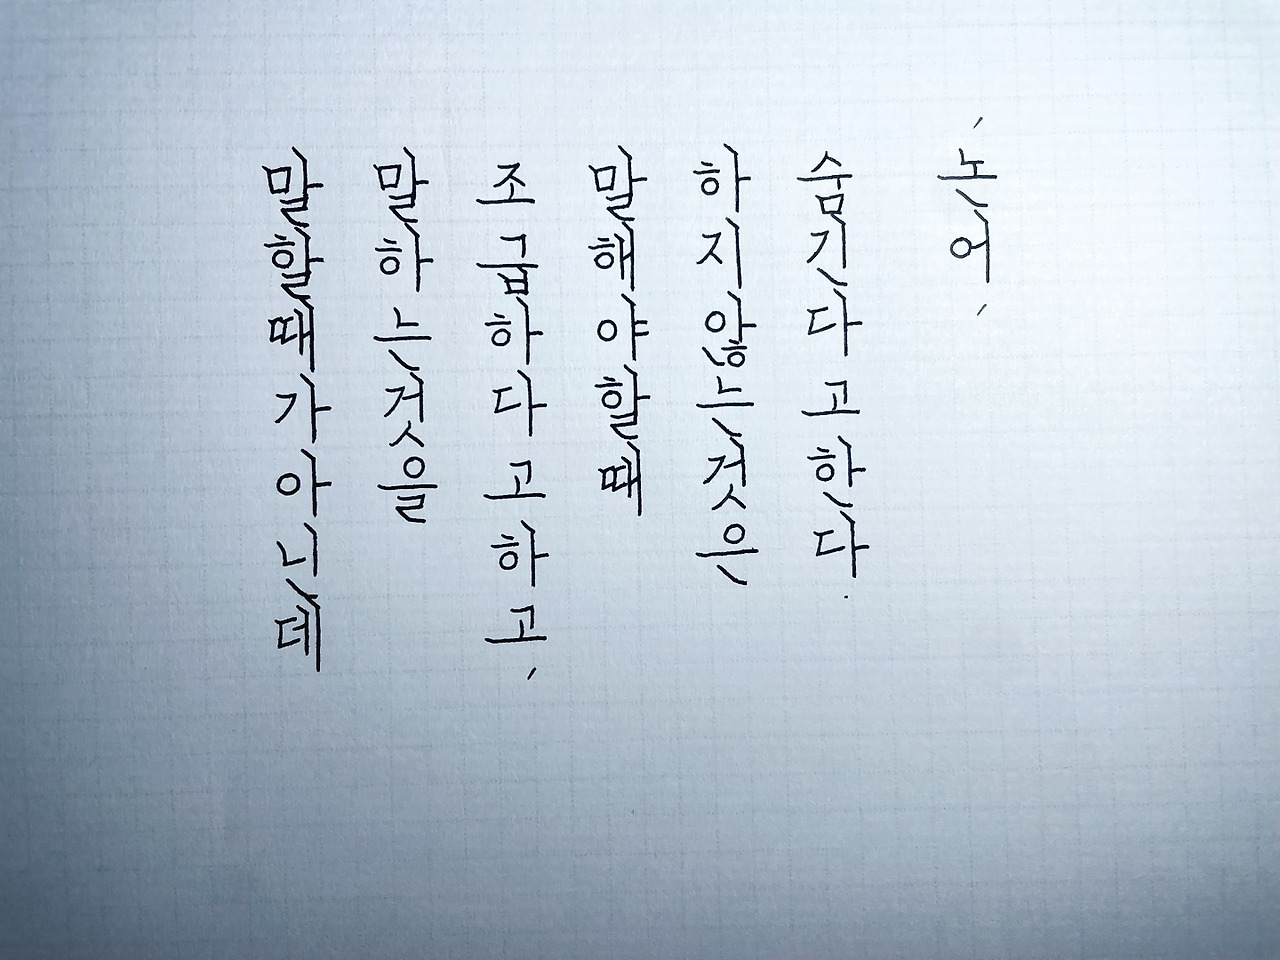 말할때가아닌데
말하는것을
조급하다고하고,
말해야할때
하지않는것은
숨긴다고한다.
'논어'